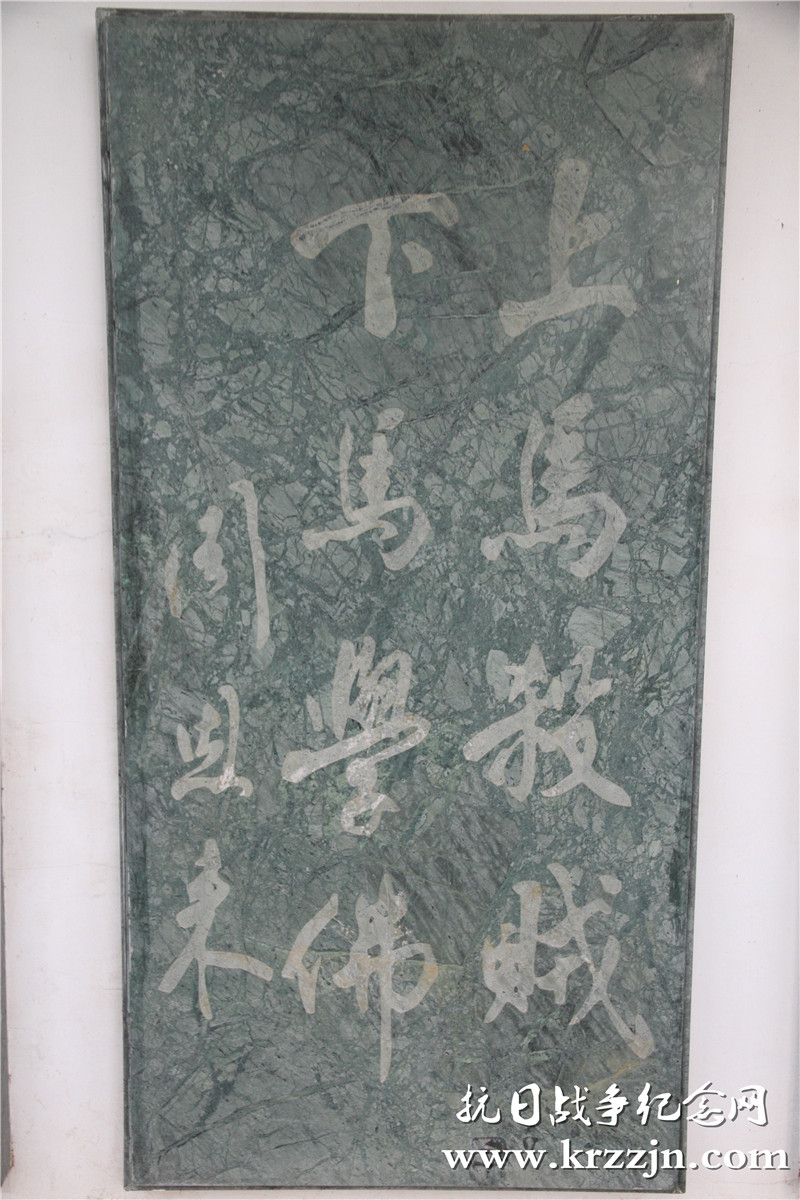 上馬殺賊
下馬學佛
周恩来
抗日战争纪念网
www.krzzjn.com